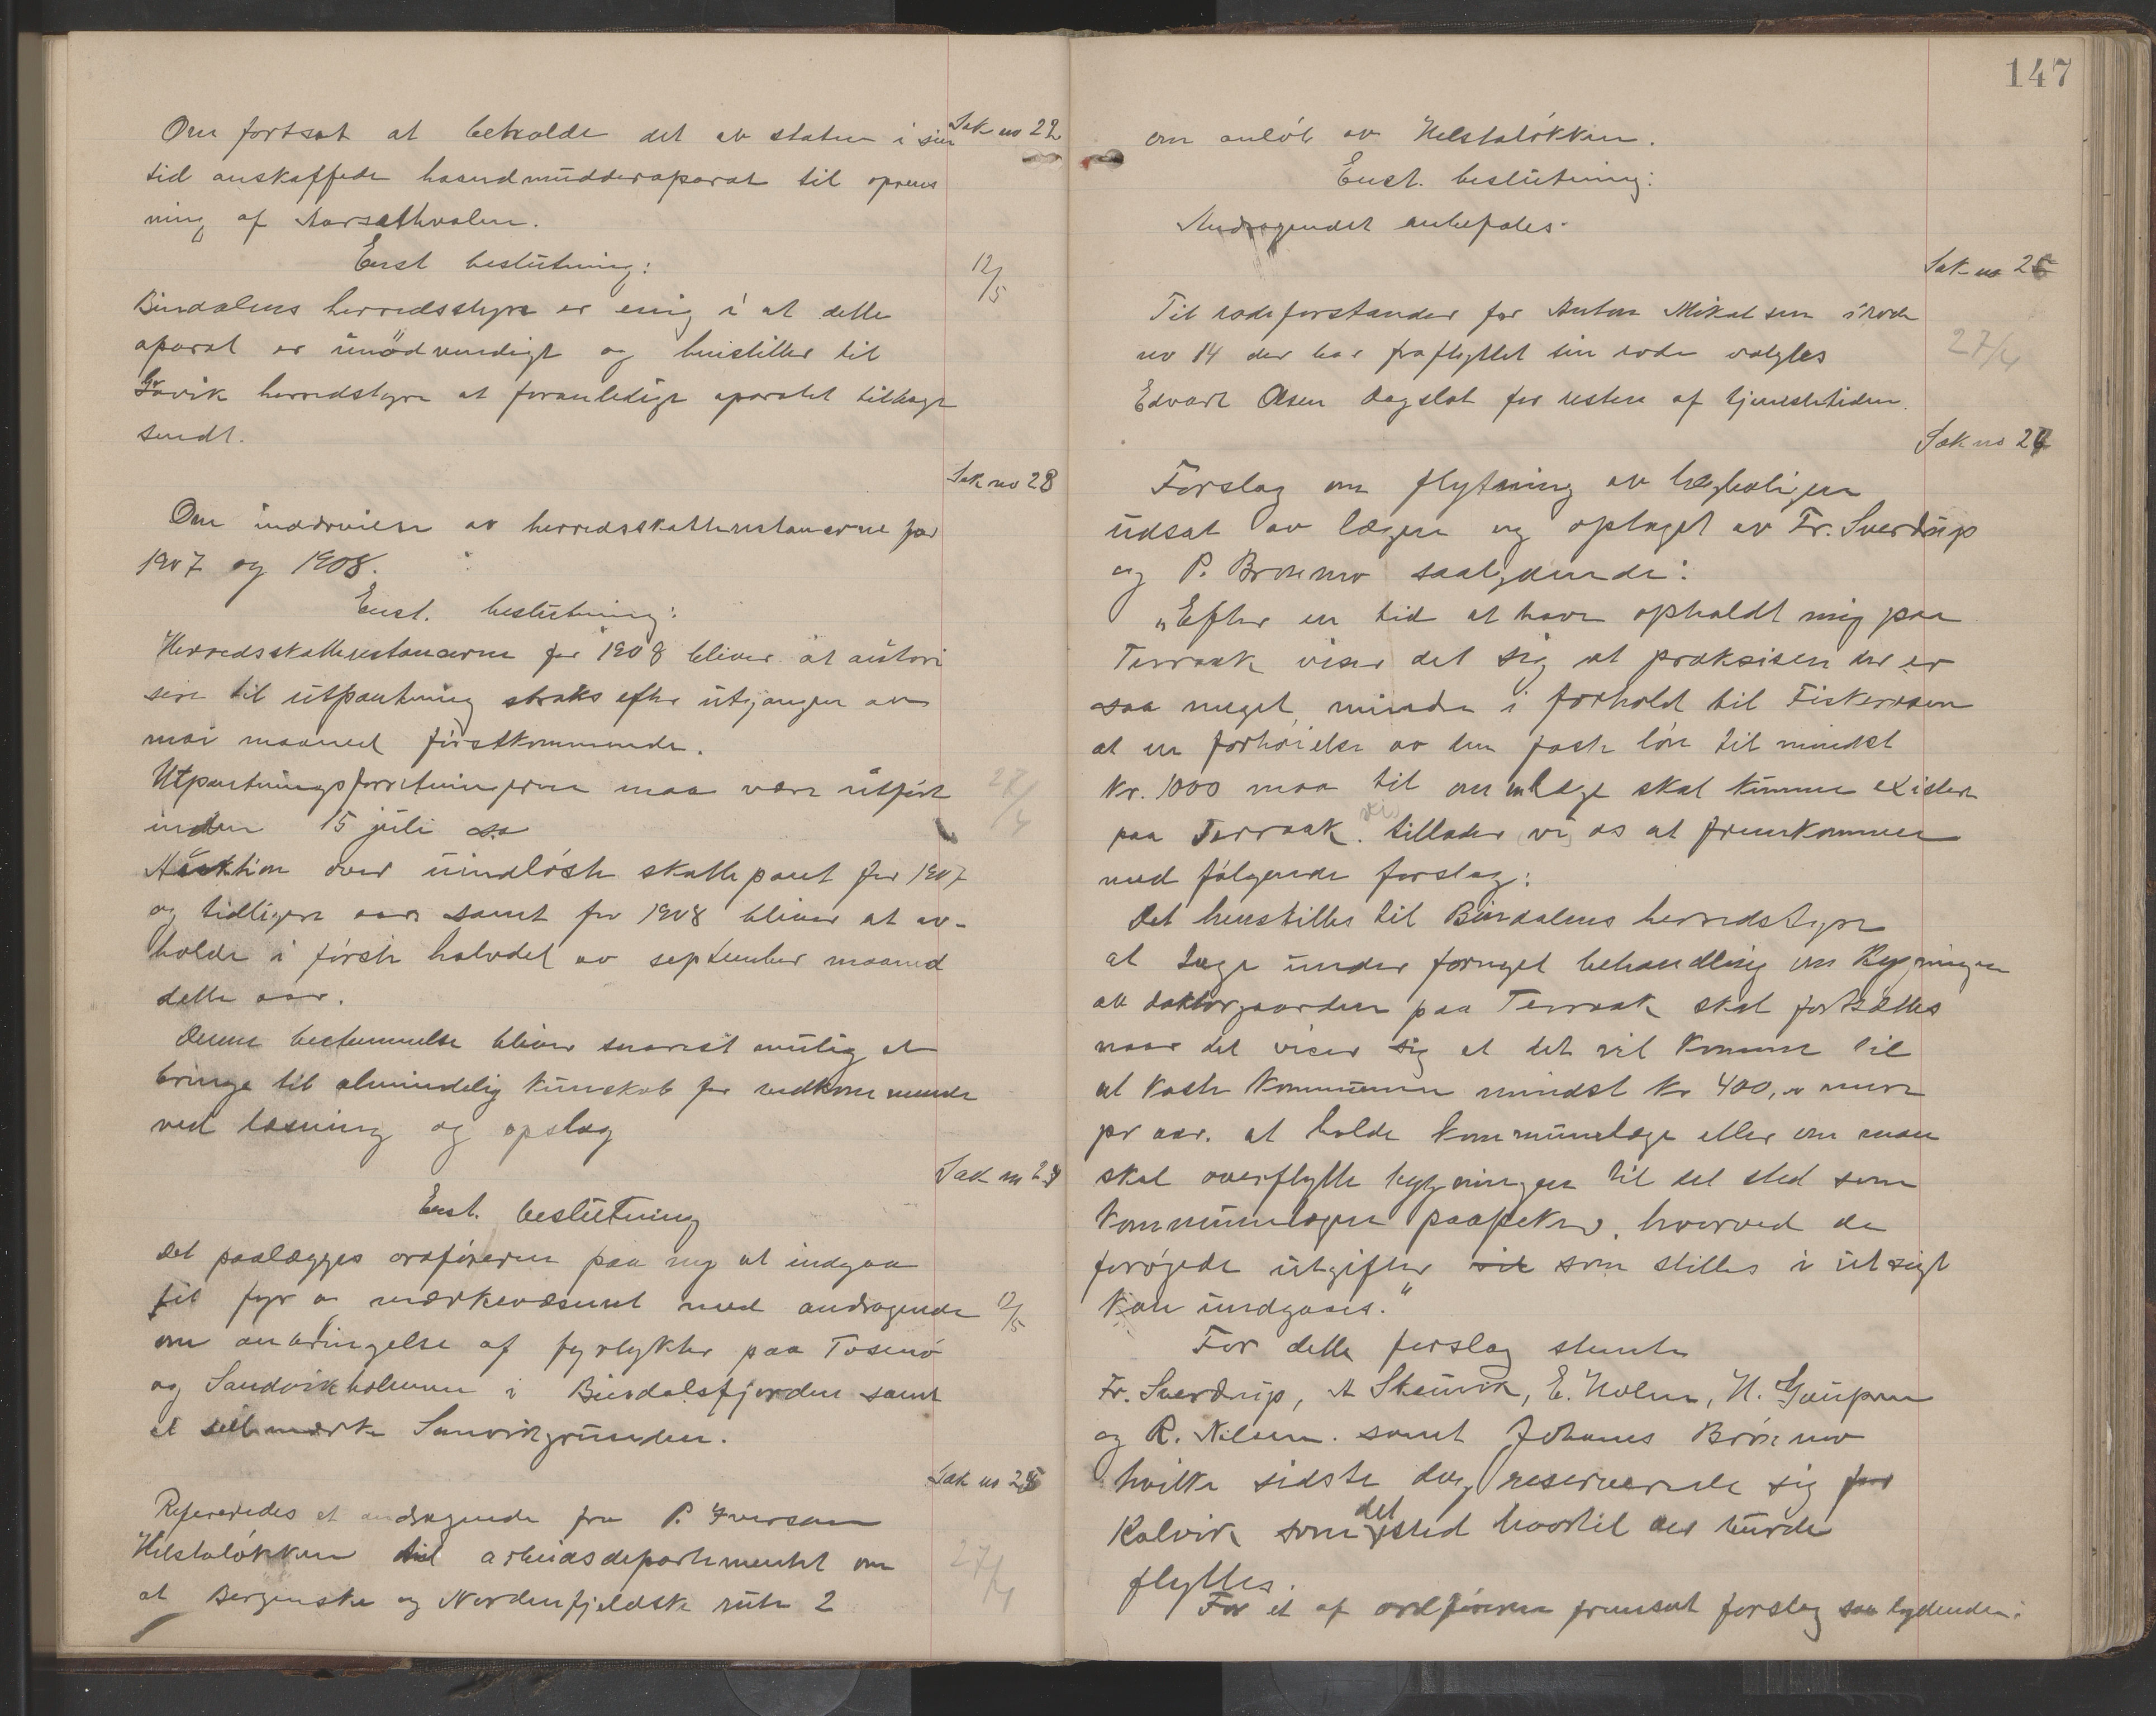 Sak no 22
Om fortsat at beholde det av staten i sin
tid anskaffede haandmudderaparat til oprens
ning af Aarsethvalen.
Enst beslutning:
12/5
Bindalens herredsstyre er enig i at dette
aparat er unødvendigt og henstiller til
herredstyre at foranledige aparatet tilbage
sendt.
Sak no 23
Om inddrivelse av herredsskatterestancerne for
1907 og 1908.
Enst. beslutning:
Herredsskatterestancerne for 1908 bliver at autori
sere til utpantning straks efter utgangen av
mai maaned førstkommende.
Utpantningsforretningerne maa være utført
27/4
inden 15 juli
Auktion over uindløste skattepant for 1907
og tidligere aar samt for 1908 bliver at av-
holde i første halvdel av september maaned
dette aar.
Denne bestemmelse bliver snarest mulig at
bringe til almindelig kundskab for vedkommende
ved læsning og opslag
Sak no 24
Enst. beslutning
Det paalægges ordføreren paa ny at indgaa
til fyr o mærkevæsenet med andragende
12/5
om anbringelse af fyrlykter paa Tosenø
og Sandvikholmen i Bindalsfjorden samt
et seilmærke Sanvikgrunden.
Sak no 25
Refereredes et andragende fra P. Iversen
Helstaløkken til arbeidsdepartementet om
27/4
at Bergenske og Nordenfjeldske rute 2
147
om anløb av Helstaløkken.
Enst. beslutning:
Andragendet anbefales.
Sak no 26
Til rodeforstander for Anton Mikalsen i rode
no 14 der har fraflyttet sin rode valgtes
27/4
Edvart Olsen Dagslot for resten af tjenestetiden.
Sak no 27
Forslag om flytning av lægboligen
udsat av lægen og optaget av Fr. Sverdrup
og P. Brønmo saalydende:
"Efter en tid at have opholdt mig paa
Terraak viser det sig at praksisen der er
saa meget mindre i forhold til Fiskerosen
at en forhøielse av den faste løn til mindst
Kr. 1000 maa til om læge skal kunne existere
paa Terraak. tillader vi os at fremkomme
med følgende forslag:
Det henstilles til Bindalens herredstyre
at tage under fornyet behandling om Bygningen
av doktorgaarden paa Terraak skal fortsættes
naar det viser sig at det vil komme til
at koste kommunen mindst kr 400,00 mere
pr aar. at holde kommunelæge eller om man
skal overflytte bygningen til det sted som
kommunelægen paapeker, hvorved de
forøgede utgifter vil som stilles i utsigt
kan undgaaes."
For dette forslag stemte
Fr. Sverdrup, A Skeinvik, E. Holm, H. Gaupen
og R. Nilsen. samt Johannes Brønmo
hvilke sidste dog reserverede sig for
Kalvik som det sted hvortil der burde
flyttes.
For et af ordføreren fremsat forslag saalydende: